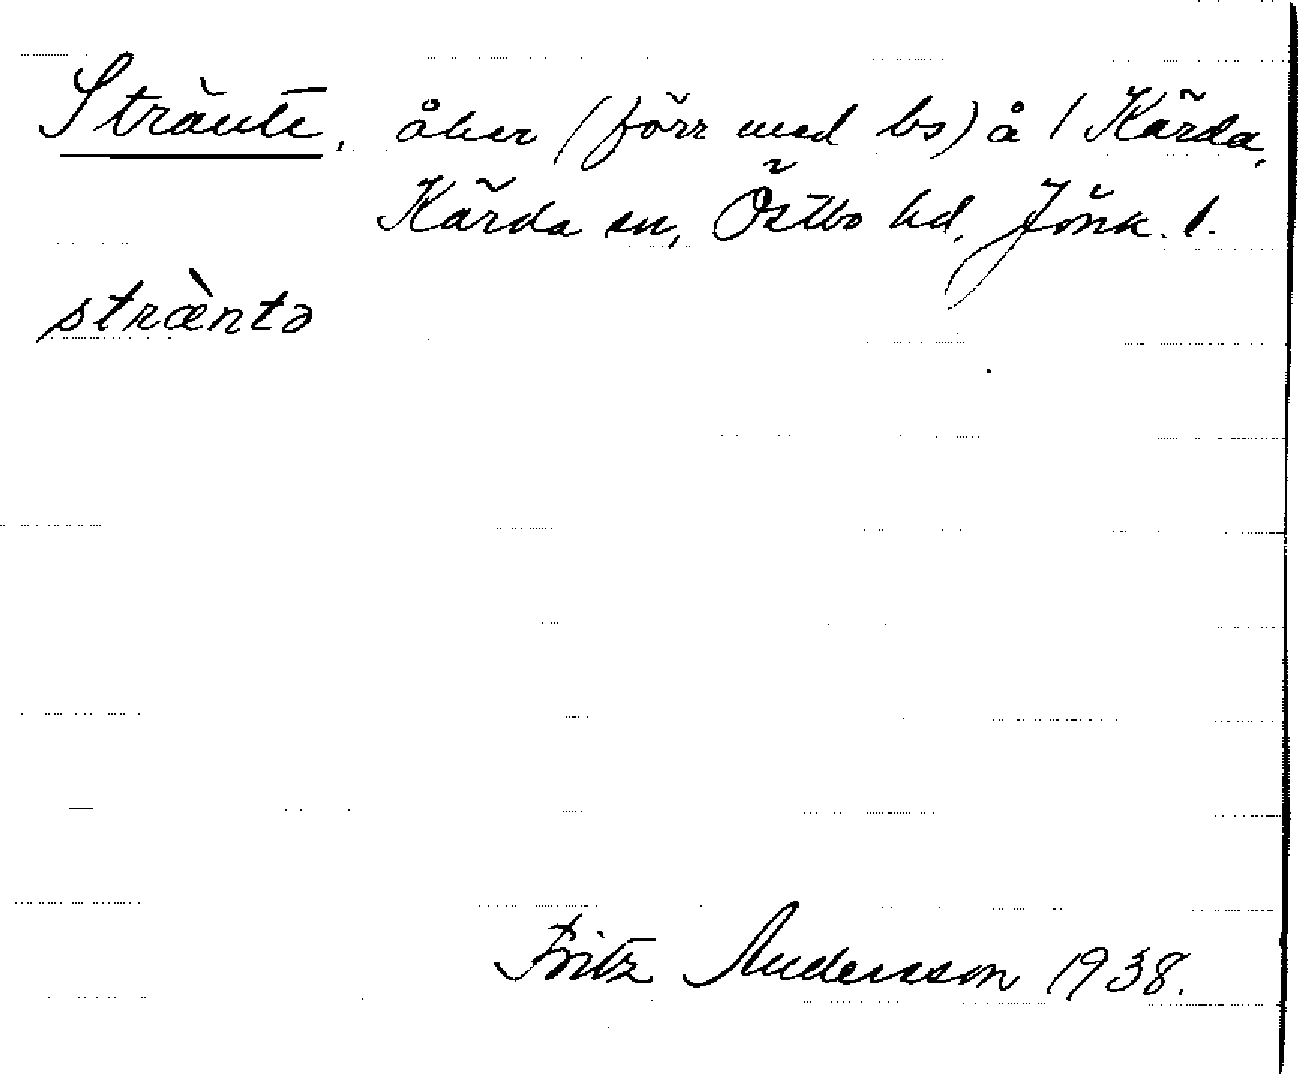 Stränte, åker (förr med bs) å 1 Kärda,
Kärda sn, Östbo hd, Jönk. l.
stræ̀ntə
Fritz Andersson 1938.